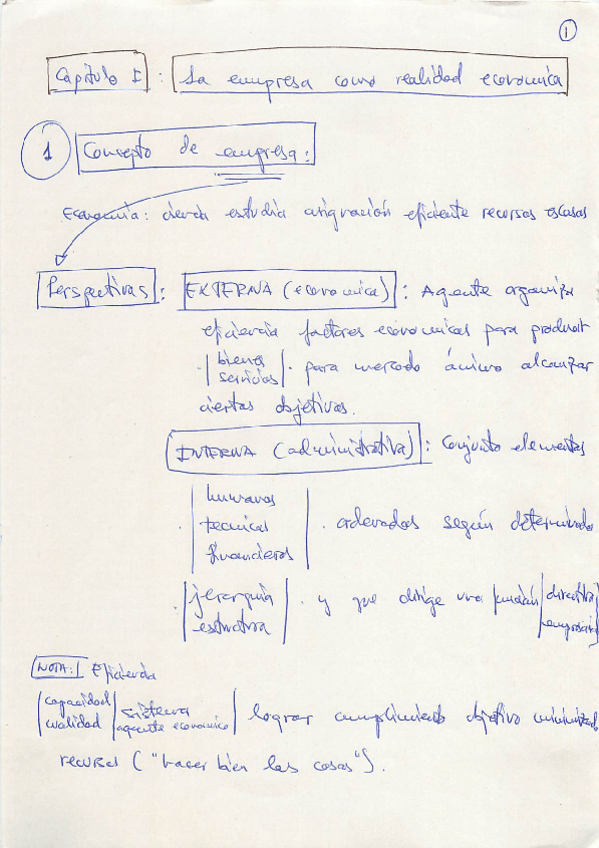 1
Capítulo I : La empresa como realidad económica
1 Concepto de empresa:
Economía: ciencia estudia asignación eficiente recursos escasos
Perspectivas: EXTERNA (económica): Agente organiza
eficiencia factores económicos para producir
bienes
servicios para mercado ánimo alcanzar
ciertos objetivos.
INTERNA (administrativa): Conjunto elementos
humanos
técnicos . ordenados según determinada
financieros
jerarquía . y que dirige una función directiva
estructura empresarial
NOTA: Eficiencia
capacidad sistema
cualidad agente económico lograr cumplimiento objetivo minimizando
recursos ("hacer bien las cosas").